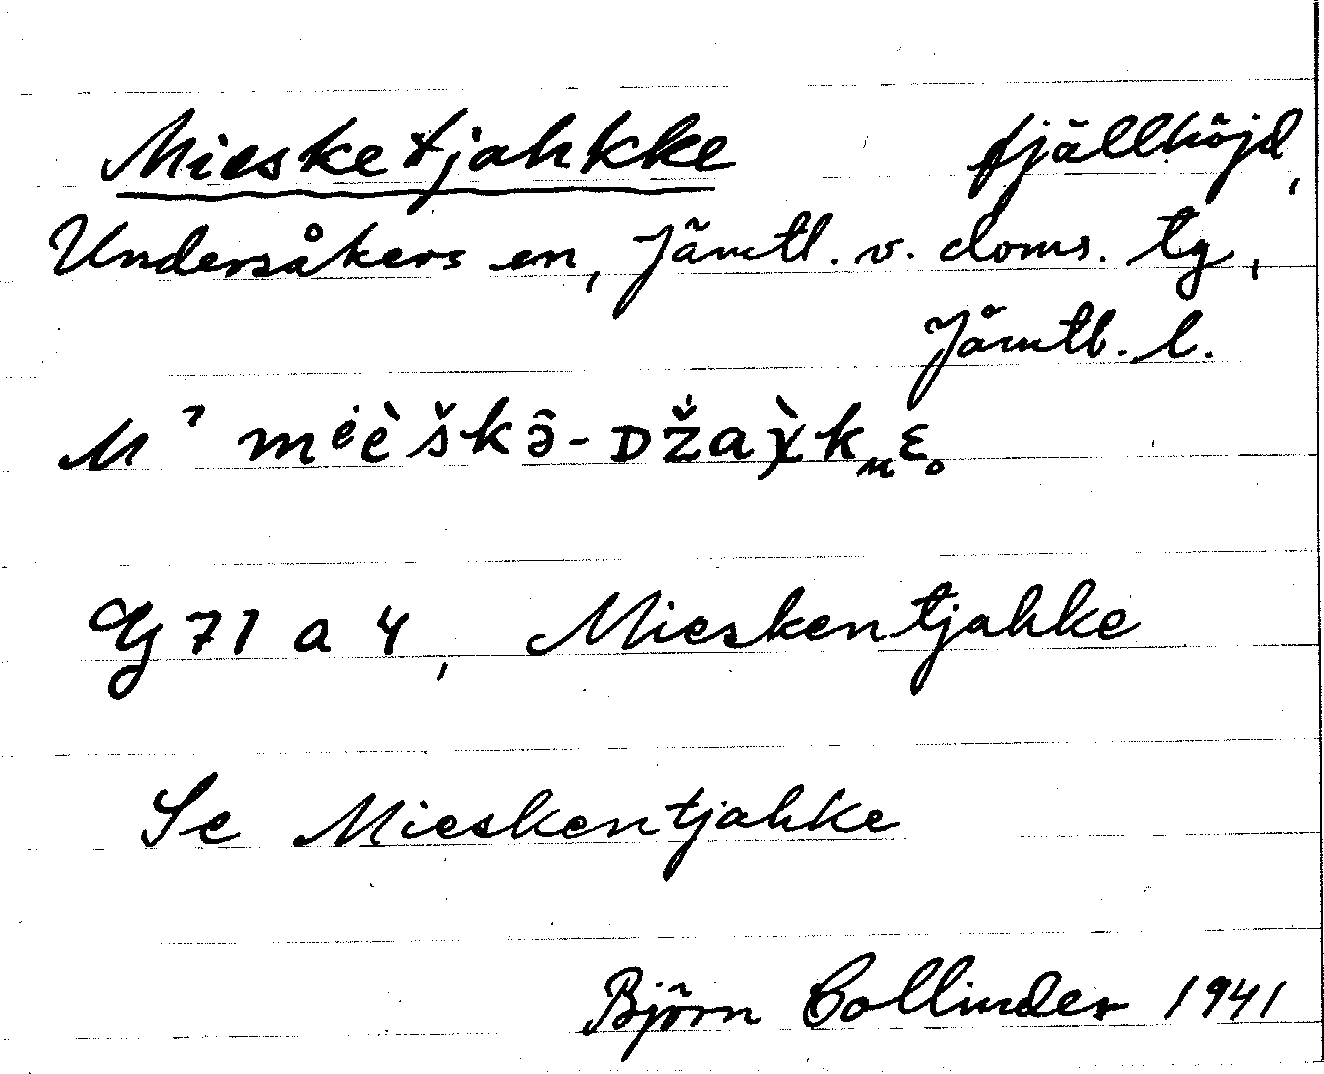 Miesketjahkke fjällhöjd,
Undersåkers sn, Jämtl. v. doms. tg,
Jämtl. l.
M ˀ mi̇èškə̑-Dža\u03c7̀kᵤɛ˳
Gj 71 a 4, Mieskentjahke
Se Mieskentjahke
Björn Collinder 1941